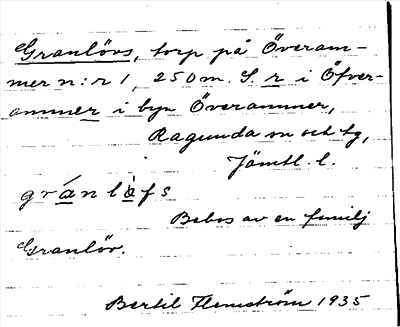 Granlövs, torp på Överam-
mer n:r 1, 250 m. S. r i Öfver-
ammer i byn Överammer,
Ragunda sn och tg,
Jämtl. l.
gránlàfs
Bebos av en familj
Granlöv.
Bertil Flemström 1935